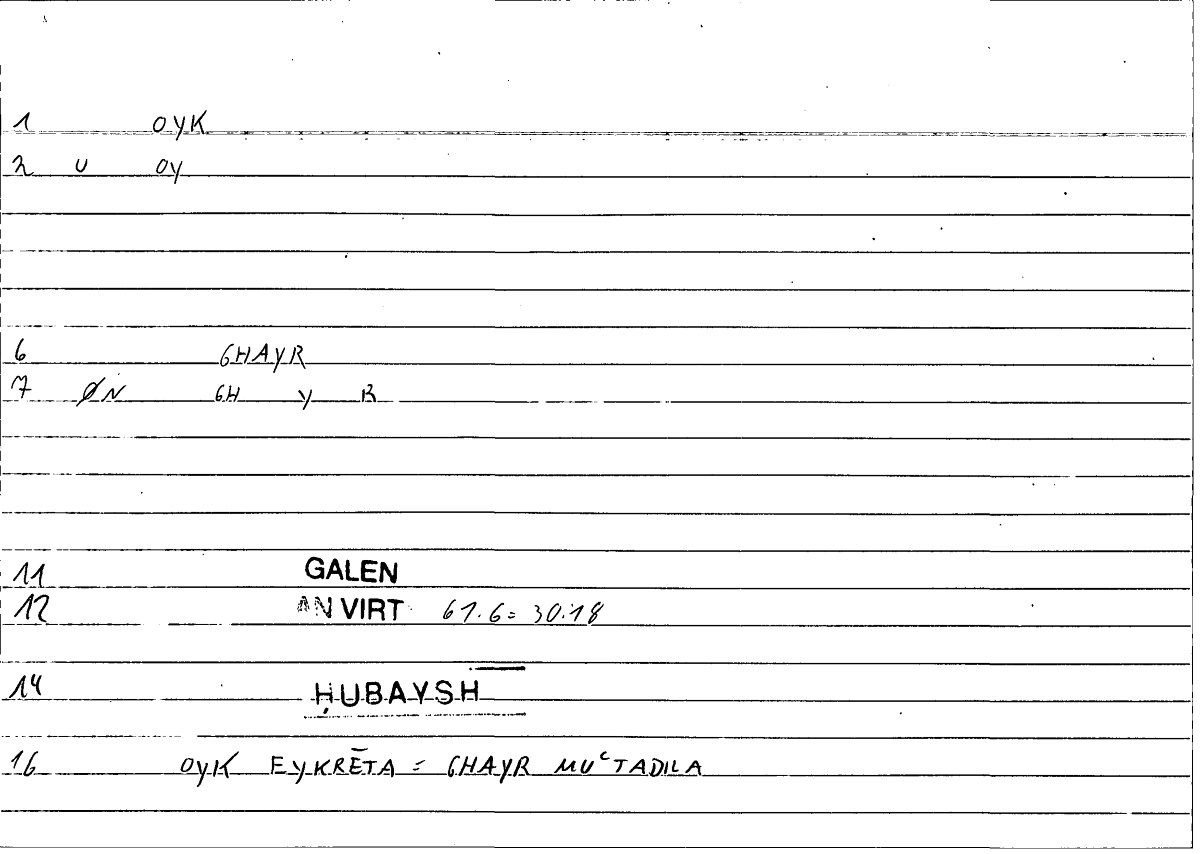 1 OYK
2 U OY
6 GHAYR
7 ØN GH Y R
11 GALEN
12 AN VIRT 61.6 = 30.18
14 ḤUBAYSH
16 OYK EYKRĒTA = GHAYR MUʿTADILA